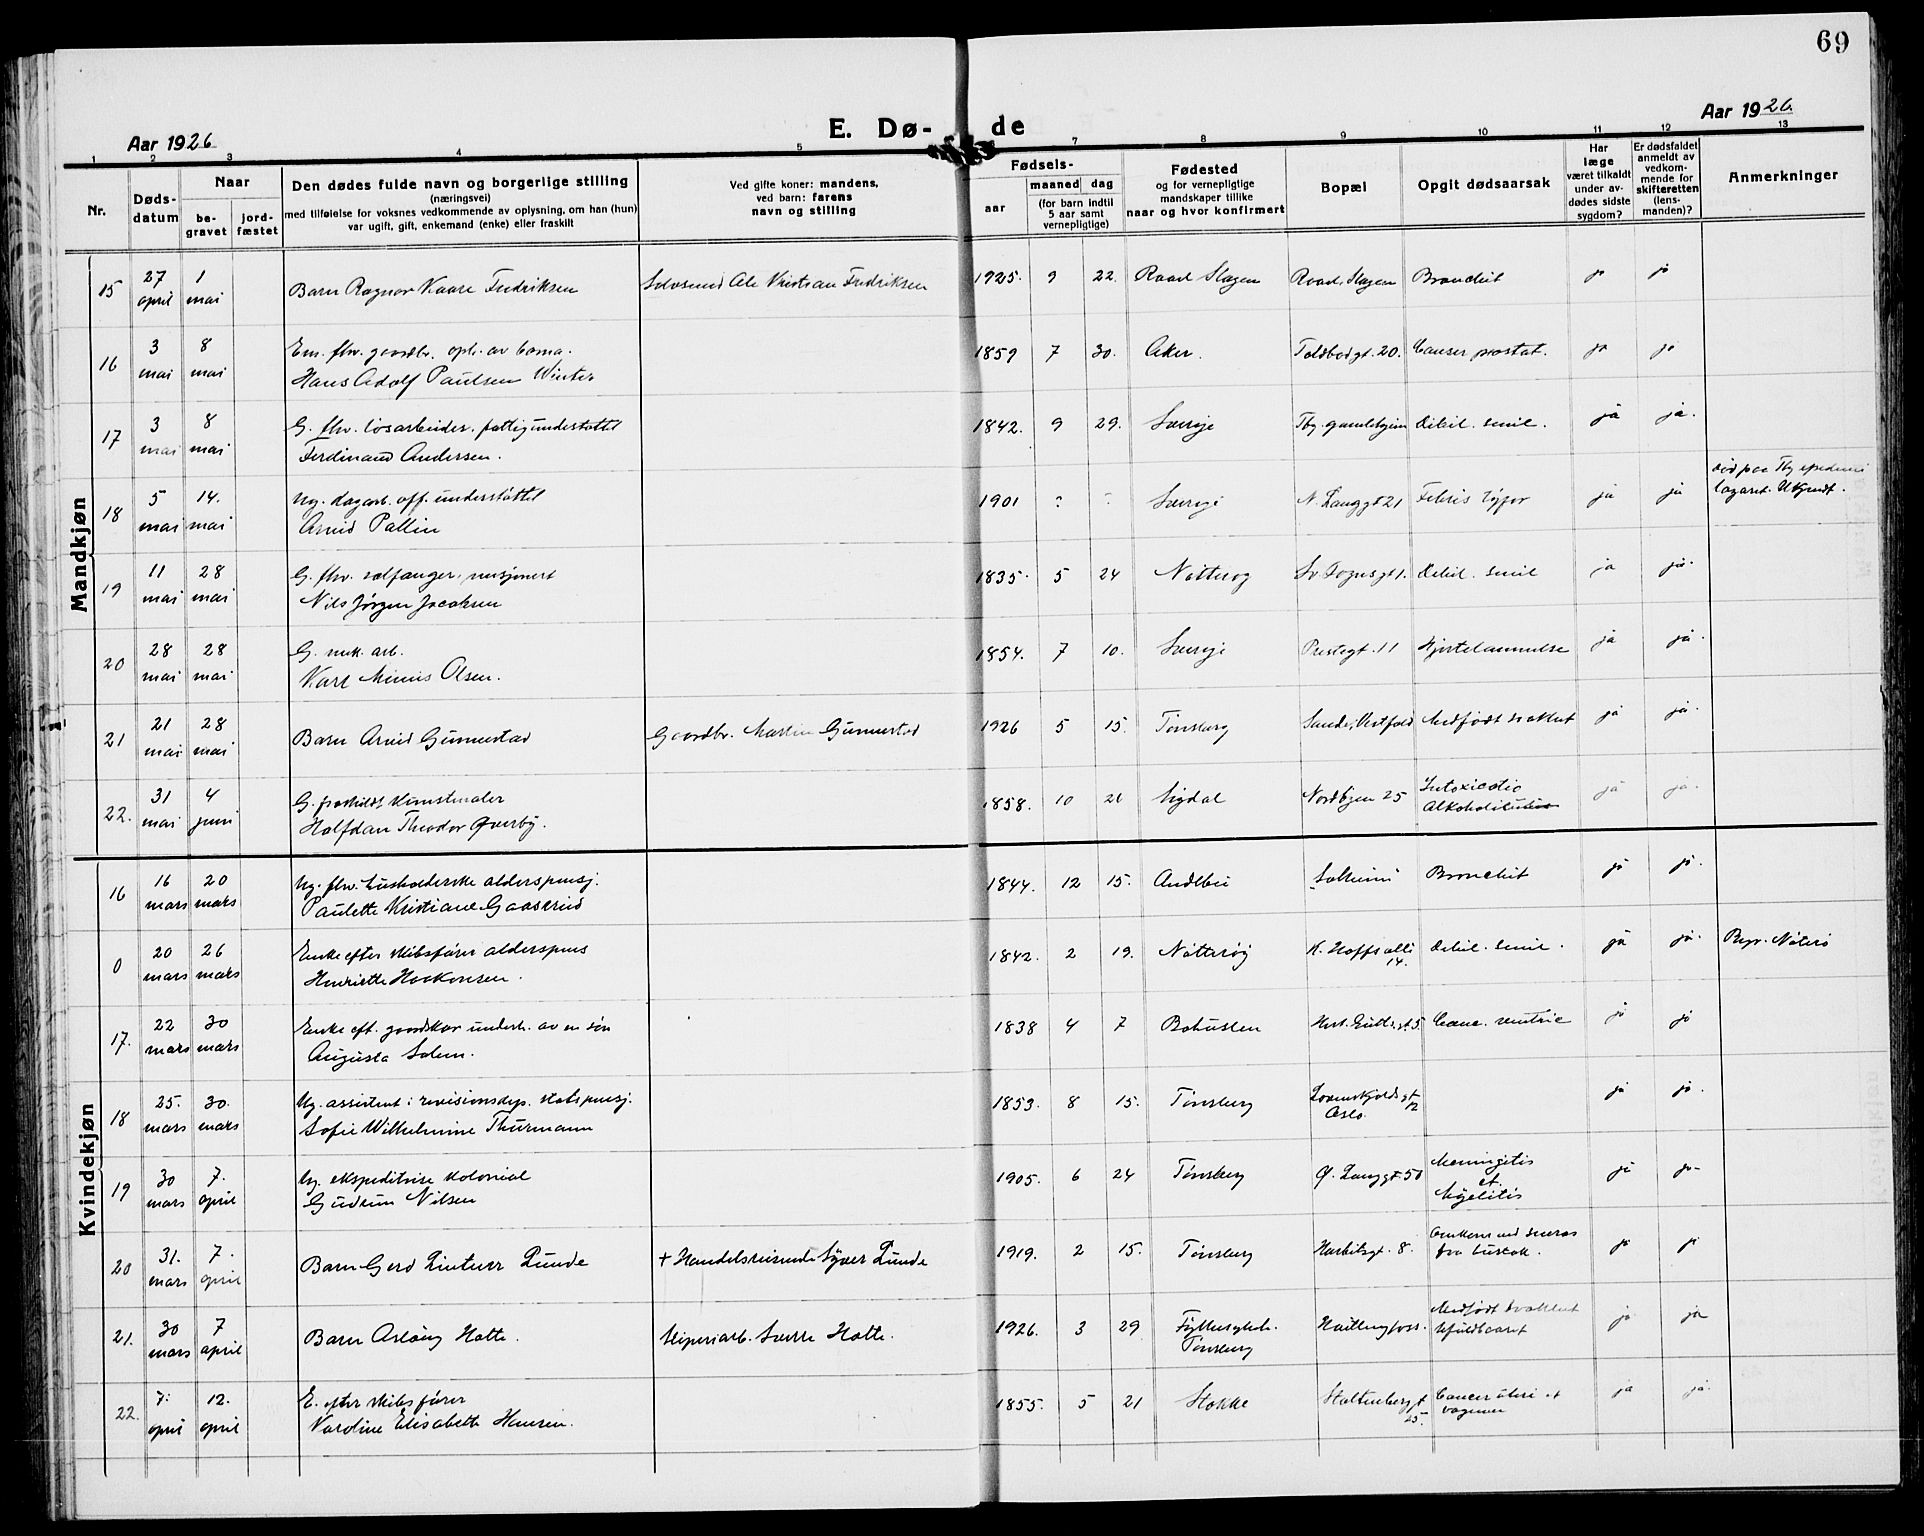 69
Aar 1926
E. Dø-
de
Aar 1926
1 2 3 4 5 7 8 9 10 11 12 13
Nr.
Døds-
datum
Naar
be-
gravet
jord-
fæstet
Den dødes fulde navn og borgerlige stilling
(næringsvei)
med tilføielse for voksnes vedkommende av oplysning, om han (hun)
var ugift, gift, enkemand (enke) eller fraskilt
Ved gifte koner: mandens,
ved barn: farens
navn og stilling
Fødsels-
aar
maaned dag
(for barn indtil
5 aar samt
vernepligtige)
Fødested
og for vernepligtige
mandskaper tillike
naar og hvor konfirmert
Bopæl
Opgit dødsaarsak
Har
læge
været tilkaldt
under av-
dødes sidste
sygdom?
Er dødsfaldet
anmeldt av
vedkom-
mende for
skifteretten
(lens-
manden)?
Anmerkninger
Mandkjøn
15 27 april 1 mai Barn Ragnar Kaare Fredriksen Ole Kristian Fredriksen 1925. 9 22. Raael Slagen Raael, Slagen Bronchit ja ja
16 3 mai 8 mai Em. fhv. gaardbr.
Hans Adolf Paulsen Winter 1859 7 30. Aker. Toldbodgt. 20. Cancer prostat. ja ja
17 3 mai 8 mai G. fhv. løsarbeider, fattigunderstøttet
Ferdinand Andersen. 1842. 9 29. Sverige Tbg. gamlehjem Debil. senil. ja ja.
18 5 mai 14. mai Ug. dagarb. off. understøttet
Arvid Pallin 1901 : : Sverige N. Langgt 21 Febris tyfor ja ja død paa Tbg epidemi
lazaret.
19 11 mai 28 mai G. fhv. sælfanger,
Nils Jørgen Jacobsen 1835. 5 24 Nøtterøy Sv. Foynsgt 1. Debil. senil ja ja.
20 28 mai 28 mai G. mek. arb.
Karl Minius Olsen. 1854. 7 10. Sverige Prestegt. 11 Hjertelammelse ja ja.
21 21 mai 28 mai Barn Arvid Gunnestad Gaardbr. Martin Gunnestad 1926 5 15. Tønsberg Sande, Vestfold Medfødt svakhet ja ja.
22. 31 mai 4 juni G. fraskildt kunstmaler
Halfdan Theodor Øverby. 1858. 10 Sigdal Nordbyen 25 Intoxicatio
ja ja.
Kvindekjøn
16 16 mars 20 mars Ug. fhv. husholderske alderspensj.
Paulette Kristiane Gaaserud 1844. 12 15. Andebu Solheim Bronchit ja ja.
0 20 mars 26 mars Enke efter skibsfører alderspens
Henriette Haakonsen. 1842. 2 19. Nøtterøy K. Hoffs allé
14. Debil. senil. ja ja. Begr. Nøterø
17. 22 mars 30 mars Enke eft. gaardskar underh. av en søn
Augusta Solem. 1838 4 7 Bohuslen Canc. ventric ja ja
18 25. mars 30. mars Ug. assistent i revisionsdep. statspensj.
Sofie Wilhelmine Thurmann 1853. 8 15. Tønsberg Løvenskjoldsgt
12
Oslo ja ja.
19 30 mars 7. april Ug. ekspeditrise kolonial
Gudrun Nilsen 1905. 6 24 Tønsberg Ø. Langgt 50 Meningitis
et
Myelitis ja ja-
20 31. mars 7. april Barn Gerd Lintner Lunde + Handelsreisende Syver Lunde 1919. 2 15. Tønsberg Haritsgt. 8. ja ja
21. 30 mars 7 april Barn Aslaug Hotte. Sliperiarb. Sverre Hotte. 1926. 3 29 Fylkessykeh.
Tønsberg Medfødt svakhet
ufuldbaaret ja ja
22. 7. april 12. april E. efter skibsfører
Karoline Elisabeth Hansen. 1855. 5 21 Stokke Stoltenbergt
25. Cancer uteri et
vaginae ja ja.